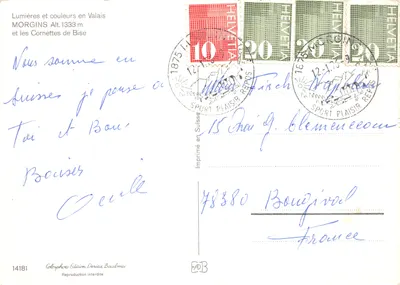 Lumières et couleurs en Valais
MORGINS Alt. 1333 m
et les Cornettes de Bise
HELVETIA 10
HELVETIA 20
HELVETIA 20
HELVETIA 20
1875 MORGINS
SPORT PLAISIR REPOS
Nous sommes en
Suisses je pense a
Toi et Bons
Baisers
15 Quai G. Clemenceau
78380 Bougival
France
Imprimé en Suisse
14181
Reproduction interdite